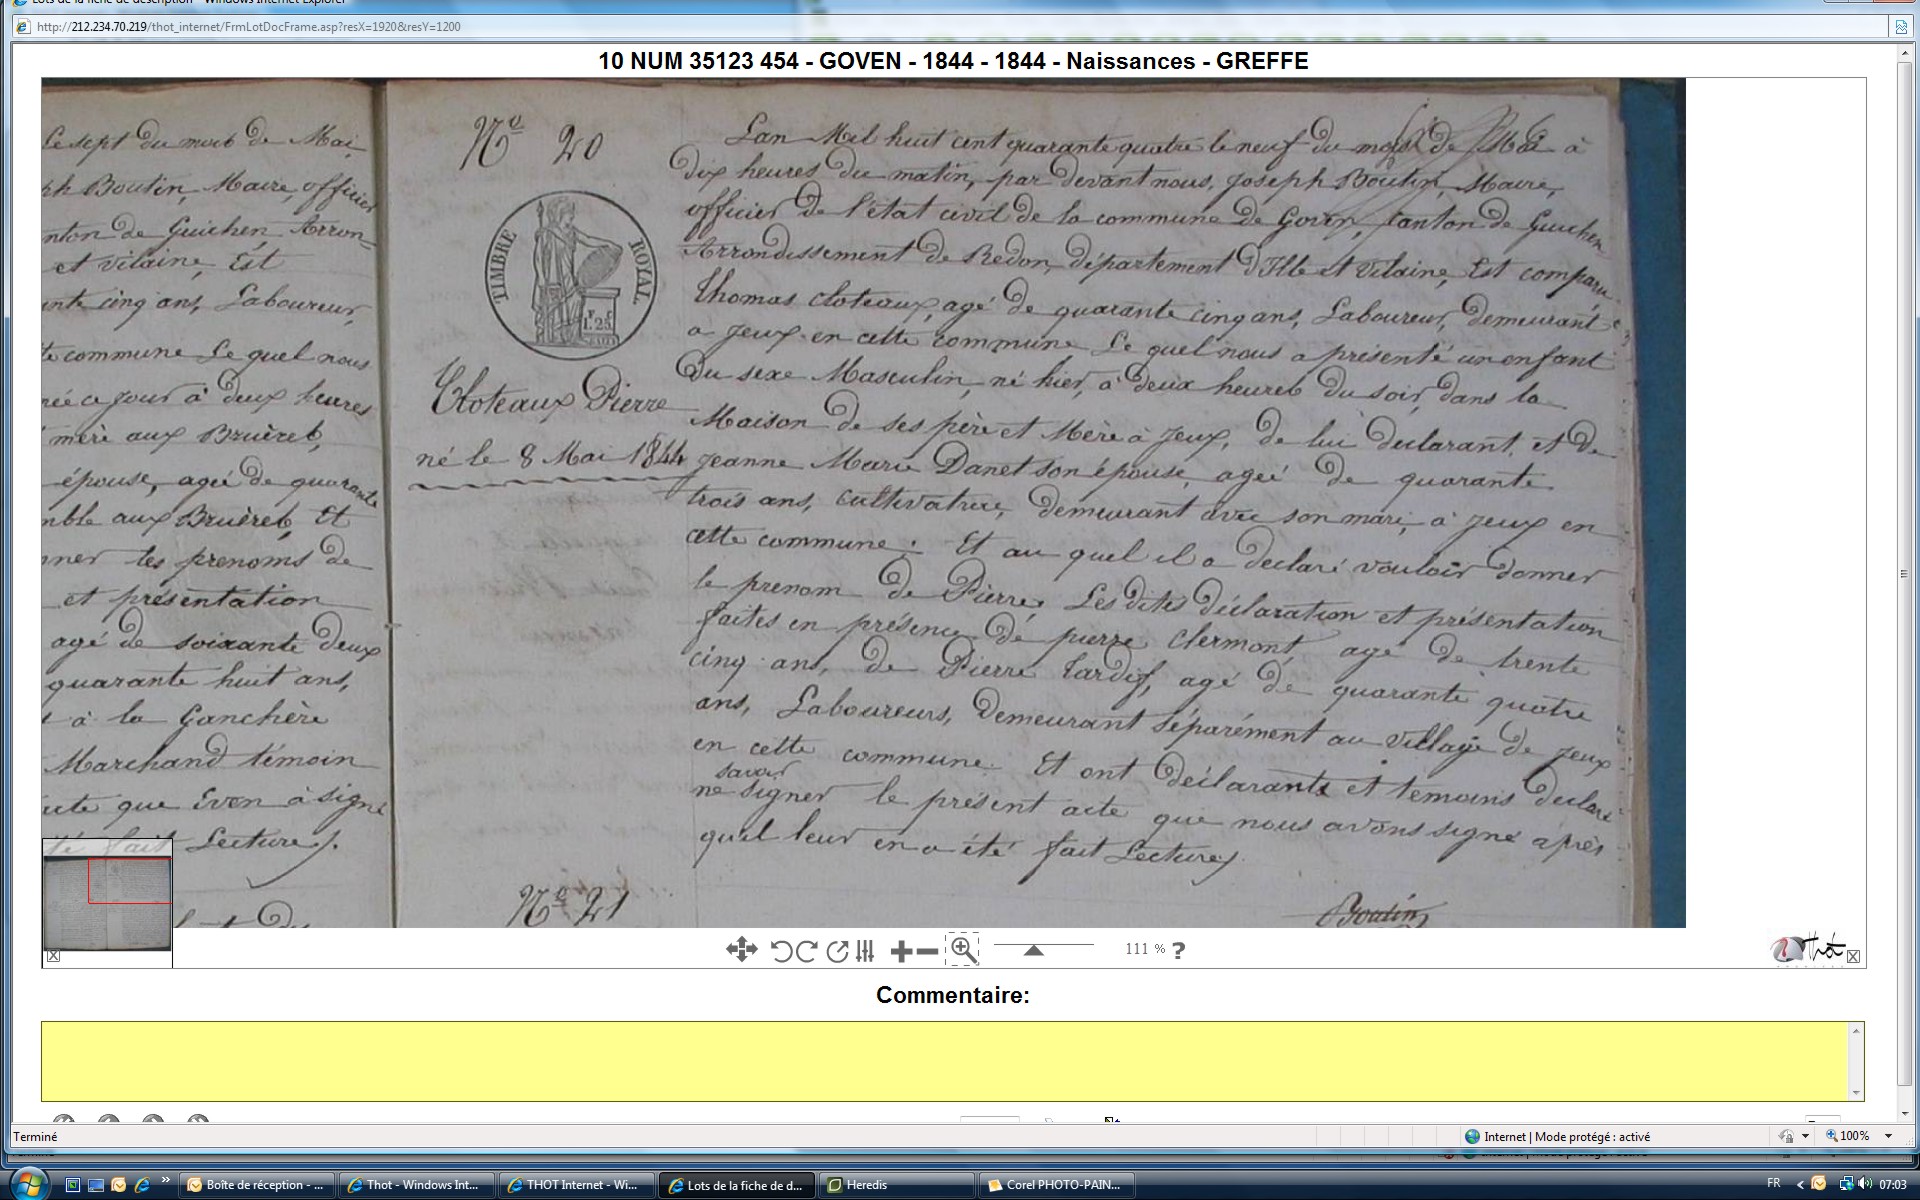 Lots de la fiche de description - Windows Internet Explorer
http://212.234.70.219/thot_internet/FrmLotDocFrame.asp?resX=1920&resY=1200
10 NUM 35123 454 - GOVEN - 1844 - 1844 - Naissances - GREFFE
Le sept du mois de Mai,
ph Boutin, Maire, officier
nton de Guichen Arron-
et vilaine, Est
ante cinq ans, Laboureur,
te commune Le quel nous
née ce jour à deux heures
mère aux Bruères,
épouse, ageé de quarante
mble aux Bruères, Et
nner les prenoms de
et présentation
agé de soixante deux
quarante huit ans,
à la Ganchère
Marchand témoin
acte que Even à signé
té fait Lecture.
No 20
TIMBRE ROYAL
1.25
Cloteaux Pierre
né le 8 Mai 1844
Lan Mil huit cent quarante quatre le neuf du mois de Mai à
dix heures du matin, par devant nous, Joseph Boutin, Maire,
officier de l'état civil de la commune de Goven, Canton de Guichen
Arrondissement de Redon, département d'Ille et Vilaine, Est comparu
Thomas Cloteaux, agé de quarante cinq ans, Laboureur, demeurant
a Jeux en cette commune Le quel nous a présenté un enfant
du sexe Masculin, né hier, à deux heures du soir, dans la
Maison de ses père et Mère à Jeux, de lui déclarant, et de
Jeanne Marie Danet son épouse, ageé de quarante
trois ans, cultivatrice, demeurant avec son mari, à Jeux en
cette commune; Et au quel il a declaré vouloir donner
le prenom de Pierre; Les dites déclaration et présentation
faites en présence de pierre Clermont, agé de trente
cinq ans, de Pierre Tardif, agé de quarante quatre
ans, Laboureurs, demeurant séparément au village de Jeux
en cette commune. Et ont déclarants et temoins declaré
savoir
ne signer le présent acte que nous avons signé après
quil leur en a été fait Lecture.
No 21
Boutin
111 % ?
Thot
Commentaire:
Terminé
Internet | Mode protégé : activé
100%
Boîte de réception - ...
Thot - Windows Int...
THOT Internet - Wi...
Lots de la fiche de d...
Heredis
Corel PHOTO-PAIN...
FR
07:03